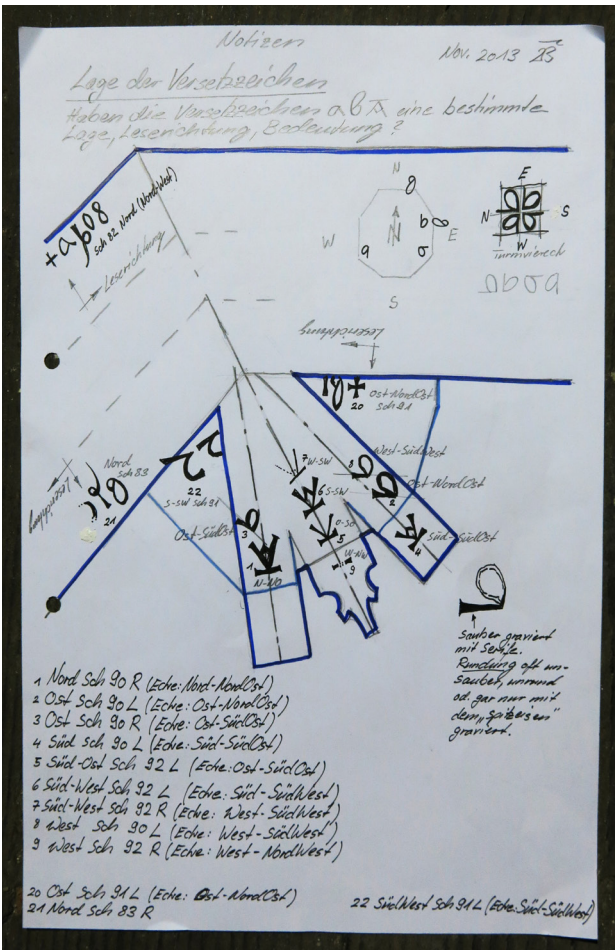 Notizen
Nov. 2013
Lage der Versetzzeichen
Haben die Versetzzeichen eine bestimmte
Lage, Leserichtung, Bedeutung?
Sch 82 Nord (NordWest)
Leserichtung
N
W
E
S
E
N
S
W
Turmviereck
Leserichtung
20
Ost-NordOst
Sch 91
Nord
Sch 83
21
Leserichtung
22
S-SW Sch 91
Ost-SüdOst
3
1
N-NO
7 W-SW
6 S-SW
O-SO
5
W-NW
9
8
West-SüdWest
2
Ost-NordOst
4
Süd-SüdOst
sauber graviert
mit Serife.
Rundung oft un-
sauber, unrund
od. gar nur mit
dem „Spitzeisen"
graviert.
1 Nord Sch 90 R (Ecke: Nord-NordOst)
2 Ost Sch 90 L (Ecke: Ost-NordOst)
3 Ost Sch 90 R (Ecke: Ost-SüdOst)
4 Süd Sch 90 L (Ecke: Süd-SüdOst)
5 Süd-Ost Sch 92 L (Ecke: Ost-SüdOst)
6 Süd-West Sch 92 L (Ecke: Süd-SüdWest)
7 Süd-West Sch 92 R (Ecke: West-SüdWest)
8 West Sch 90 L (Ecke: West-SüdWest)
9 West Sch 92 R (Ecke: West-NordWest)
20 Ost Sch 91 L (Ecke: Ost-NordOst)
21 Nord Sch 83 R
22 SüdWest Sch 91 L (Ecke: Süd-SüdWest)